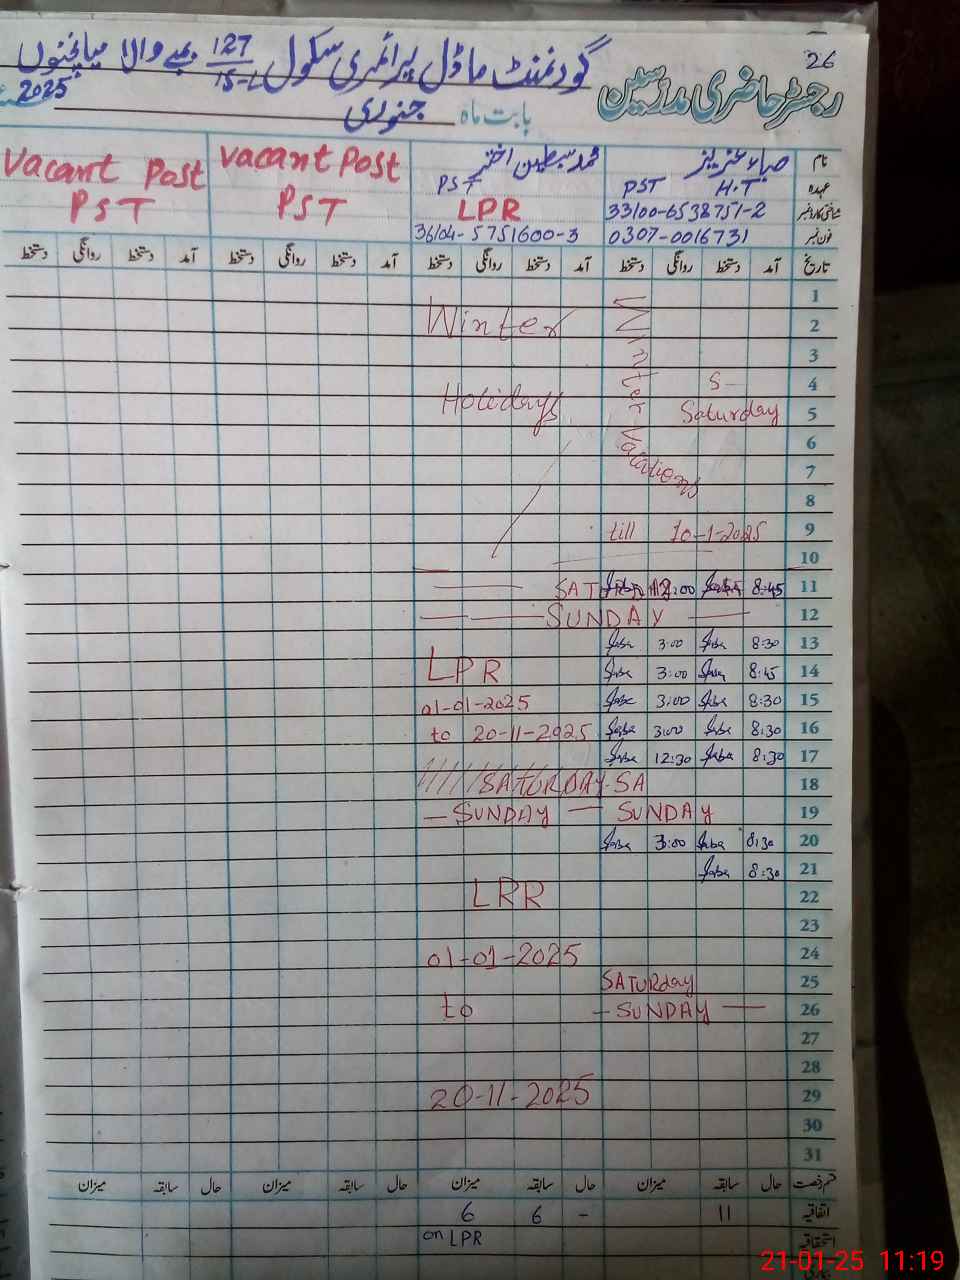 26
گورنمنٹ ماڈل پرائمری سکول 127/15-L بمبے والا میاں چنوں
رجسٹر حاضری مدرسین
بابت ماہ جنوری 2025
نام صباء عزیز محمد سبطین اختر Vacant Post Vacant Post
عہدہ H.T PST PST PST PST
شناختی کارڈ نمبر 33100-6538751-2 LPR
فون نمبر 0307-0016731 36104-5751600-3
تاریخ آمد دستخط روانگی دستخط آمد دستخط روانگی دستخط آمد دستخط روانگی دستخط آمد دستخط روانگی دستخط
1
2 Winter
3 Winter
4 S-
5 Saturday Holidays
6
7 Vacations
8
9 till 10-1-2025
10
11 8:45 12:00
12 SUNDAY
13 8:30 Saba 3:00 Saba
14 8:45 Saba 3:00 Saba LPR
15 8:30 Saba 3:00 Saba 01-01-2025
16 8:30 Saba 3:00 Saba to 20-11-2025
17 8:30 Saba 12:30 Saba
18 SATURDAY-SA
19 SUNDAY SUNDAY
20 8:30 Saba 3:00 Saba
21 8:30 Saba
22 LRR
23
24 01-01-2025
25 SATURday
26 SUNDAY to
27
28
29 20-11-2025
30
31
قسم رخصت حال سابقہ میزان حال سابقہ میزان حال سابقہ میزان حال سابقہ میزان
اتفاقیہ 11 - 6 6
استحقاقیہ on LPR
21-01-25 11:19